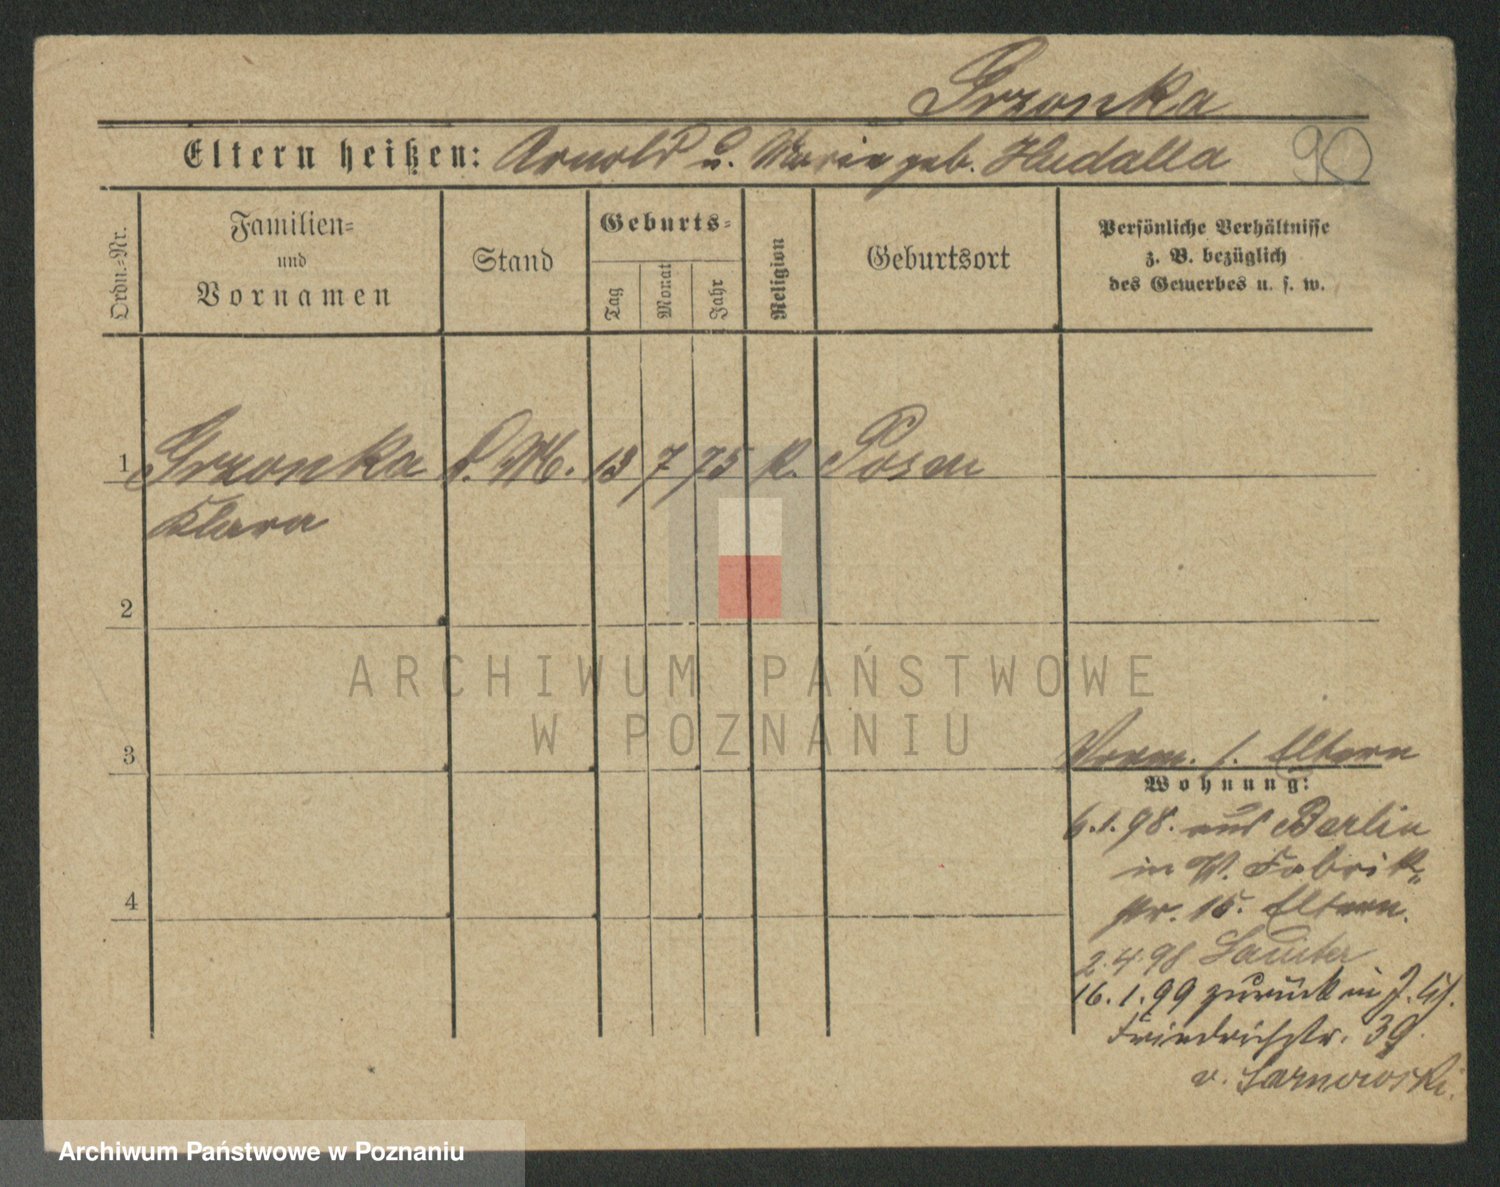 Grzonka
Eltern heißen: Arnold u. Marie geb. Hudalla
90
Ordn.-Nr.
Familien-
und
Vornamen
Stand
Geburts-
Tag
Monat
Jahr
Religion
Geburtsort
Persönliche Verhältnisse
z. B. bezüglich
des Gewerbes u. s. w.
1 Grzonka d. M. 13 7 75 k. Posen
Klara
2
3
Vorm. s. Eltern
Wohnung:
6.1.98. aus Berlin
in W. Fabrik-
str. 15. Eltern.
4
2.4.98
16.1.99 zurück in J.
Friedrichstr. 39.
v. Sarnowski.
ARCHIWUM PAŃSTWOWE
W POZNANIU
Archiwum Państwowe w Poznaniu